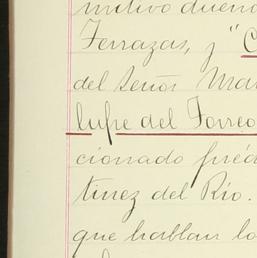 mitivo dueño
Terrazas, y "C
del Señor Ma
lupe del Torreo
cionado préd
tinez del Rio.
que hablan lo